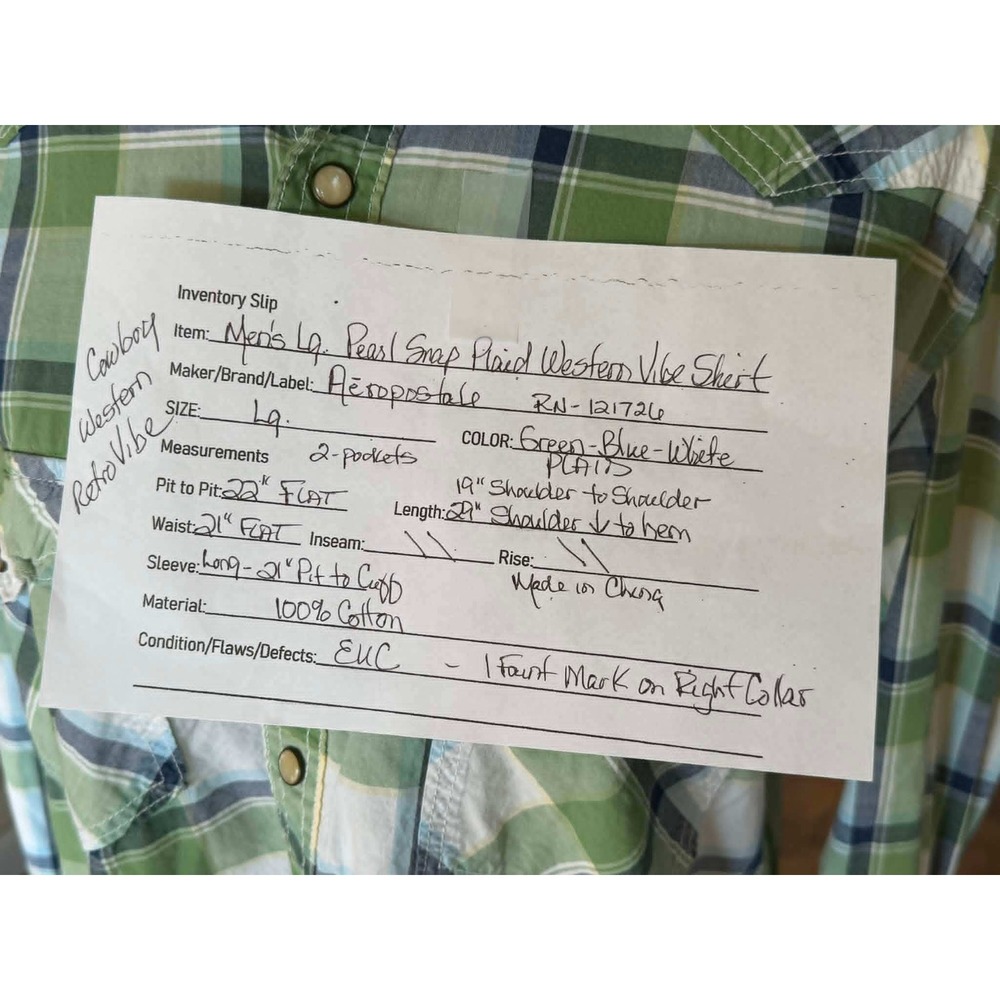 Inventory Slip
Item: Men's Lg. Pearl Snap Plaid Western Vibe Shirt
Maker/Brand/Label: Aéropostale RN-121726
SIZE: Lg.
COLOR: Green-Blue-White
PLAID
Measurements 2-pockets
Pit to Pit: 22" FLAT
19" Shoulder to Shoulder
Length: 29" Shoulder ↓ to hem
Waist: 21" FLAT Inseam: \\ Rise: \\
Sleeve: Long - 21" Pit to Cuff
Made in China
Material: 100% Cotton
Condition/Flaws/Defects: EUC - 1 Faint Mark on Right Collar
Cowboy
Western
Retro Vibe